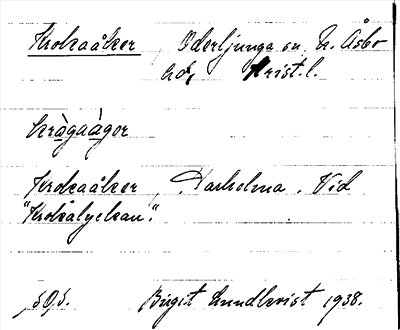 Krokaåker, Oderljunga sn, N. Åsbo
hd, Krist. l.
kràgaåger
Krokaåker, Karholma. Vid
"Krokalyckan".
Birgit Lundkvist 1938.